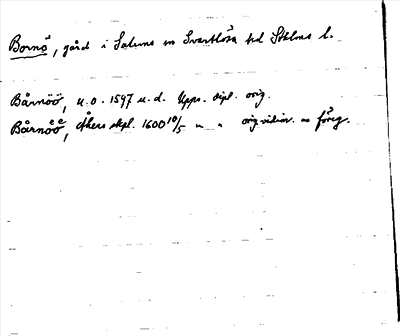 Bornö, gård i Salems sn Svartlösa hd Sthlms l.
Bårnöö, u.o. 1597 u.d. Upps. dipl. orig.
Bårnöö, Åkers skpl. 1600 10/5 " " orig.vidim. = föreg.